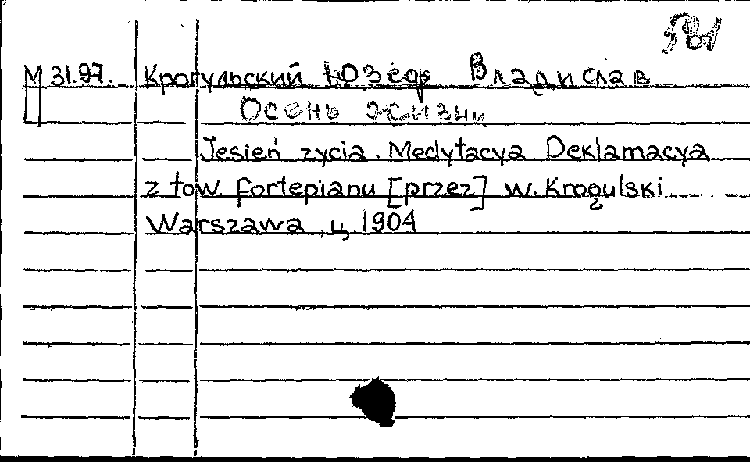 М 31.97. Крогульский Юзеф Владислав
Осень жизни
Jesień zycia. Medytacya Deklamacya
z tow. fortepianu [przez] w. Krogulski
Warszawa, ц, 1904